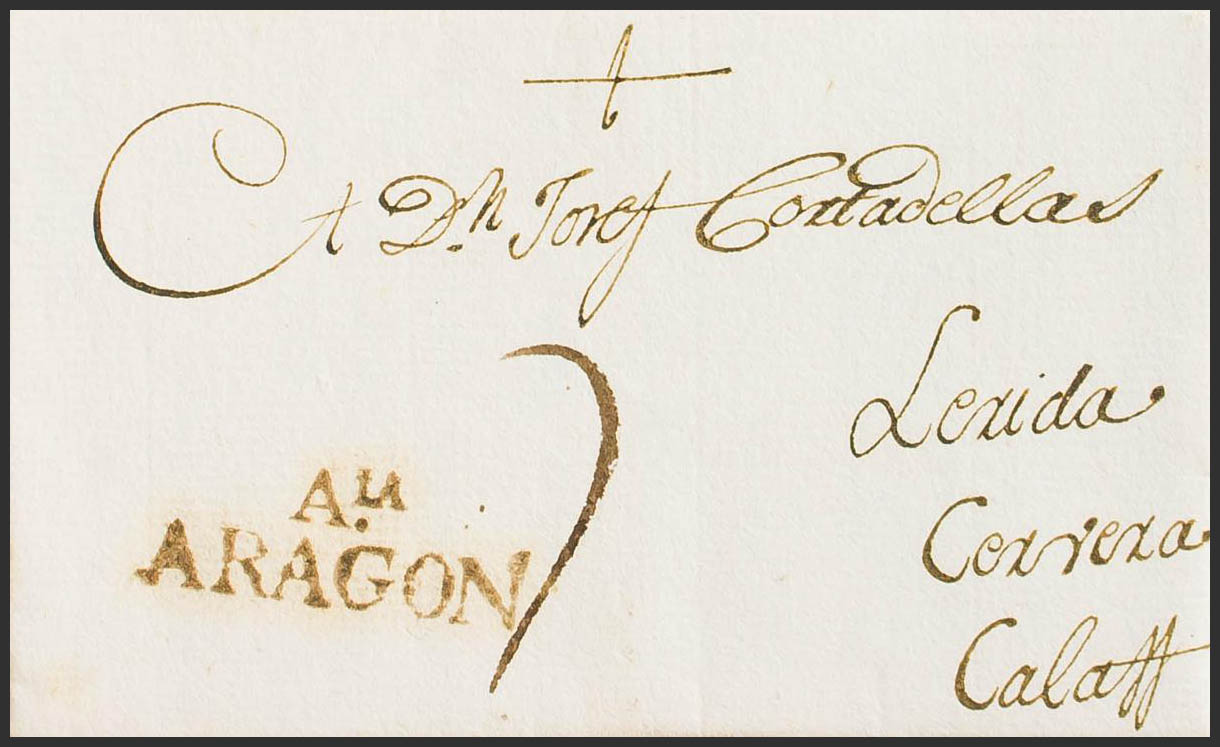 A Dn. Josef Cortadellas
Lerida
Cervera
Calaff
A.u
ARAGON